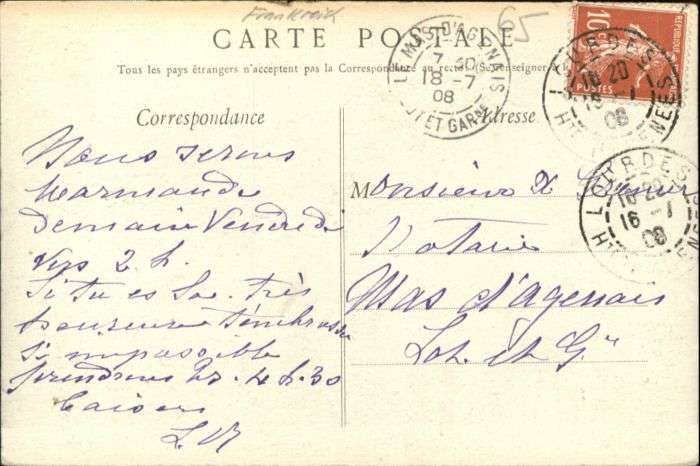 Frankreich
65
CARTE POSTALE
Tous les pays étrangers n'acceptent pas la Correspondance au recto (Se renseigner à la
Correspondance
Adresse
REPUBLIQUE
10
LE MAS D'AGENAIS
7 30
18 -7
08
LOT ET GARNE
LOURDES
16 20
16 -
08
Hs PYRENEES
LOURDES
16 20
16 -
08
Nous serons
Marmande
Demain Vendredi
vers 2 h.
Si tu es là. très
heureuse t'embrasser
Si impossible
prendrons tr. 4 h. 30
Baisers
Monsieur X
Notaire
Mas d'Agenais
Lot. et Gne